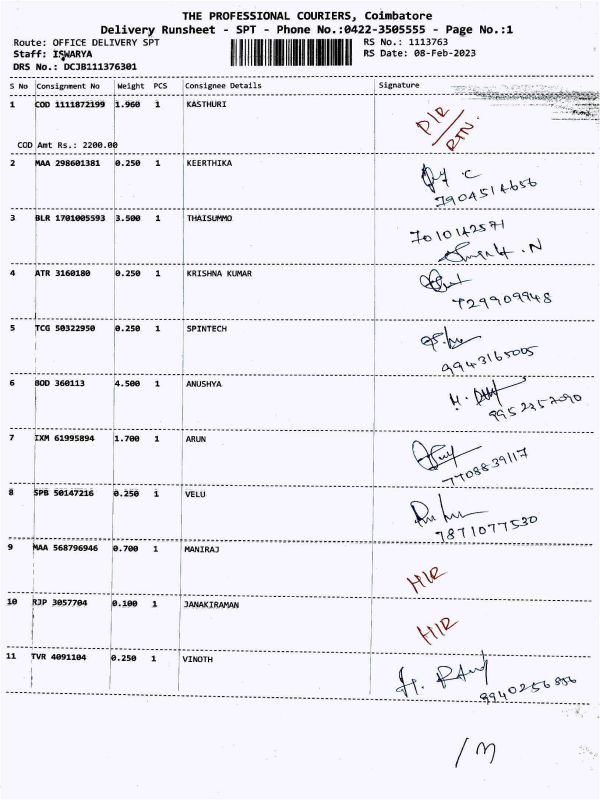 THE PROFESSIONAL COURIERS, Coimbatore
Delivery Runsheet - SPT - Phone No.:0422-3505555 - Page No.:1
Route: OFFICE DELIVERY SPT
RS No.: 1113763
Staff: ISWARYA
RS Date: 08-Feb-2023
DRS No.: DCJB111376301
S No Consignment No Weight PCS Consignee Details Signature
1 COD 1111872199 1.960 1 KASTHURI
P/R
RTN.
COD Amt Rs.: 2200.00
2 MAA 298601381 0.250 1 KEERTHIKA
7904514656
3 BLR 1701005593 3.500 1 THAISUMMO
7010142571
4 ATR 3160180 0.250 1 KRISHNA KUMAR
729909948
5 TCG 50322950 0.250 1 SPINTECH
9943165005
6 BOD 360113 4.500 1 ANUSHYA
9952357090
7 IXM 61995894 1.700 1 ARUN
7708839117
8 SPB 50147216 0.250 1 VELU
7871077530
9 MAA 568796946 0.700 1 MANIRAJ
HIR
10 RJP 3057704 0.100 1 JANAKIRAMAN
HIR
11 TVR 4091104 0.250 1 VINOTH
9940256886